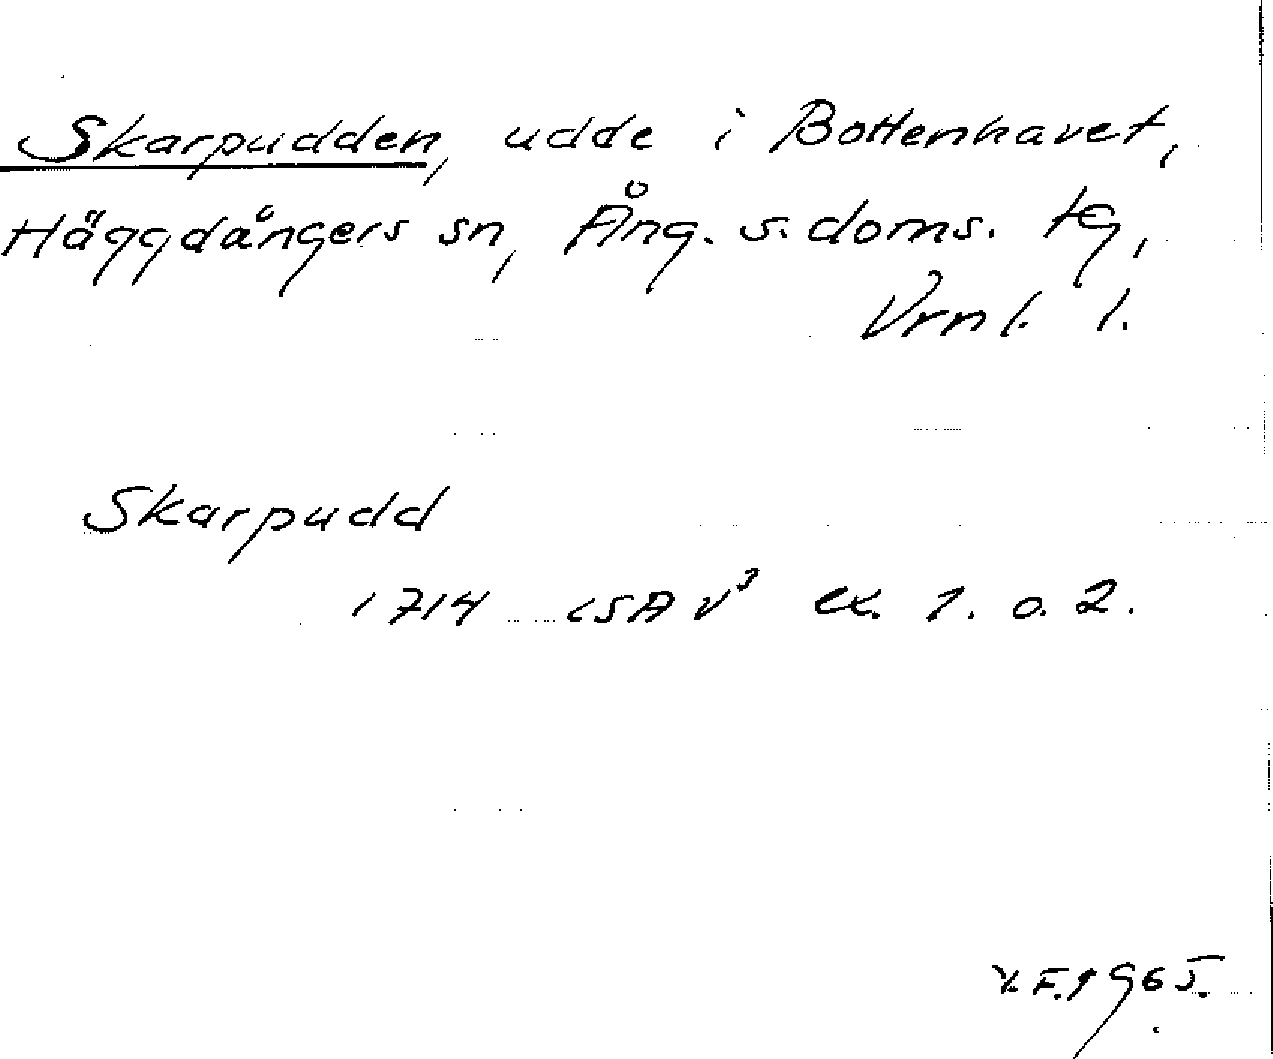 Skarpudden, udde i Bottenhavet,
Häggdångers sn, Ång. s. doms. tg,
Vrnl. l.
Skarpudd
1714 LSA V³ ex. 1. o. 2.
F. 1965.